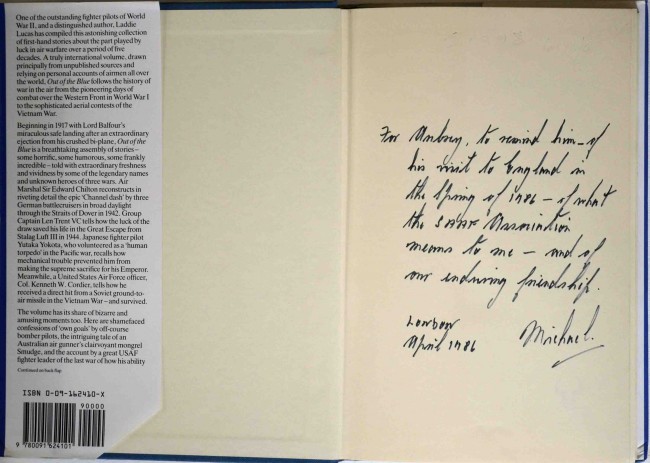 One of the outstanding fighter pilots of World
War II, and a distinguished author, Laddie
Lucas has compiled this astonishing collection
of first-hand stories about the part played by
luck in air warfare over a period of five
decades. A truly international volume, drawn
principally from unpublished sources and
relying on personal accounts of airmen all over
the world, Out of the Blue follows the history of
war in the air from the pioneering days of
combat over the Western Front in World War I
to the sophisticated aerial contests of the
Vietnam War.
Beginning in 1917 with Lord Balfour's
miraculous safe landing after an extraordinary
ejection from his crushed bi-plane, Out of the
Blue is a breathtaking assembly of stories –
some horrific, some humorous, some frankly
incredible – told with extraordinary freshness
and vividness by some of the legendary names
and unknown heroes of three wars. Air
Marshal Sir Edward Chilton reconstructs in
riveting detail the epic 'Channel dash' by three
German battlecruisers in broad daylight
through the Straits of Dover in 1942. Group
Captain Len Trent VC tells how the luck of the
draw saved his life in the Great Escape from
Stalag Luft III in 1944. Japanese fighter pilot
Yutaka Yokota, who volunteered as a 'human
torpedo' in the Pacific war, recalls how
mechanical trouble prevented him from
making the supreme sacrifice for his Emperor.
Meanwhile, a United States Air Force officer,
Col. Kenneth W. Cordier, tells how he
received a direct hit from a Soviet ground-to-
air missile in the Vietnam War – and survived.
The volume has its share of bizarre and
amusing moments too. Here are shamefaced
confessions of 'own goals' by off-course
bomber pilots, the intriguing tale of an
Australian air gunner's clairvoyant mongrel
Smudge, and the account by a great USAF
fighter leader of the last war of how his ability
Continued on back flap
ISBN 0-09-162410-X
90000
9 780091 624101
For Aubrey, to remind him – of
his visit to England in
the Spring of 1986 – of what
the SAAF Association
means to me – and of
our enduring friendship.
London
April 1986 Michael.